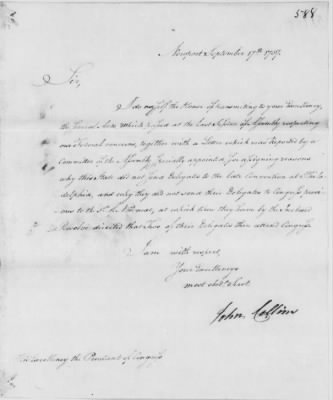 588
Newport September 17th. 1787.
Sir,
I do myself the Honor of transmitting to your Excellency,
the several Acts which passed at the last Session of Assembly respecting
our foederal concerns, together with a Letter which was reported by a
Committee of the Assembly specially appointed, for assigning reasons
why this State did not send Delegates to the late Convention at Phila-
delphia, and why they did not send their Delegates to Congress previ-
ous to the 1st. of November, at which time they have by the inclosed
Resolve directed that two of their Delegates then attend Congress
I am with respect,
Your Excellencys
most obdt. Servt.
John Collins
His Excellency the President of Congress